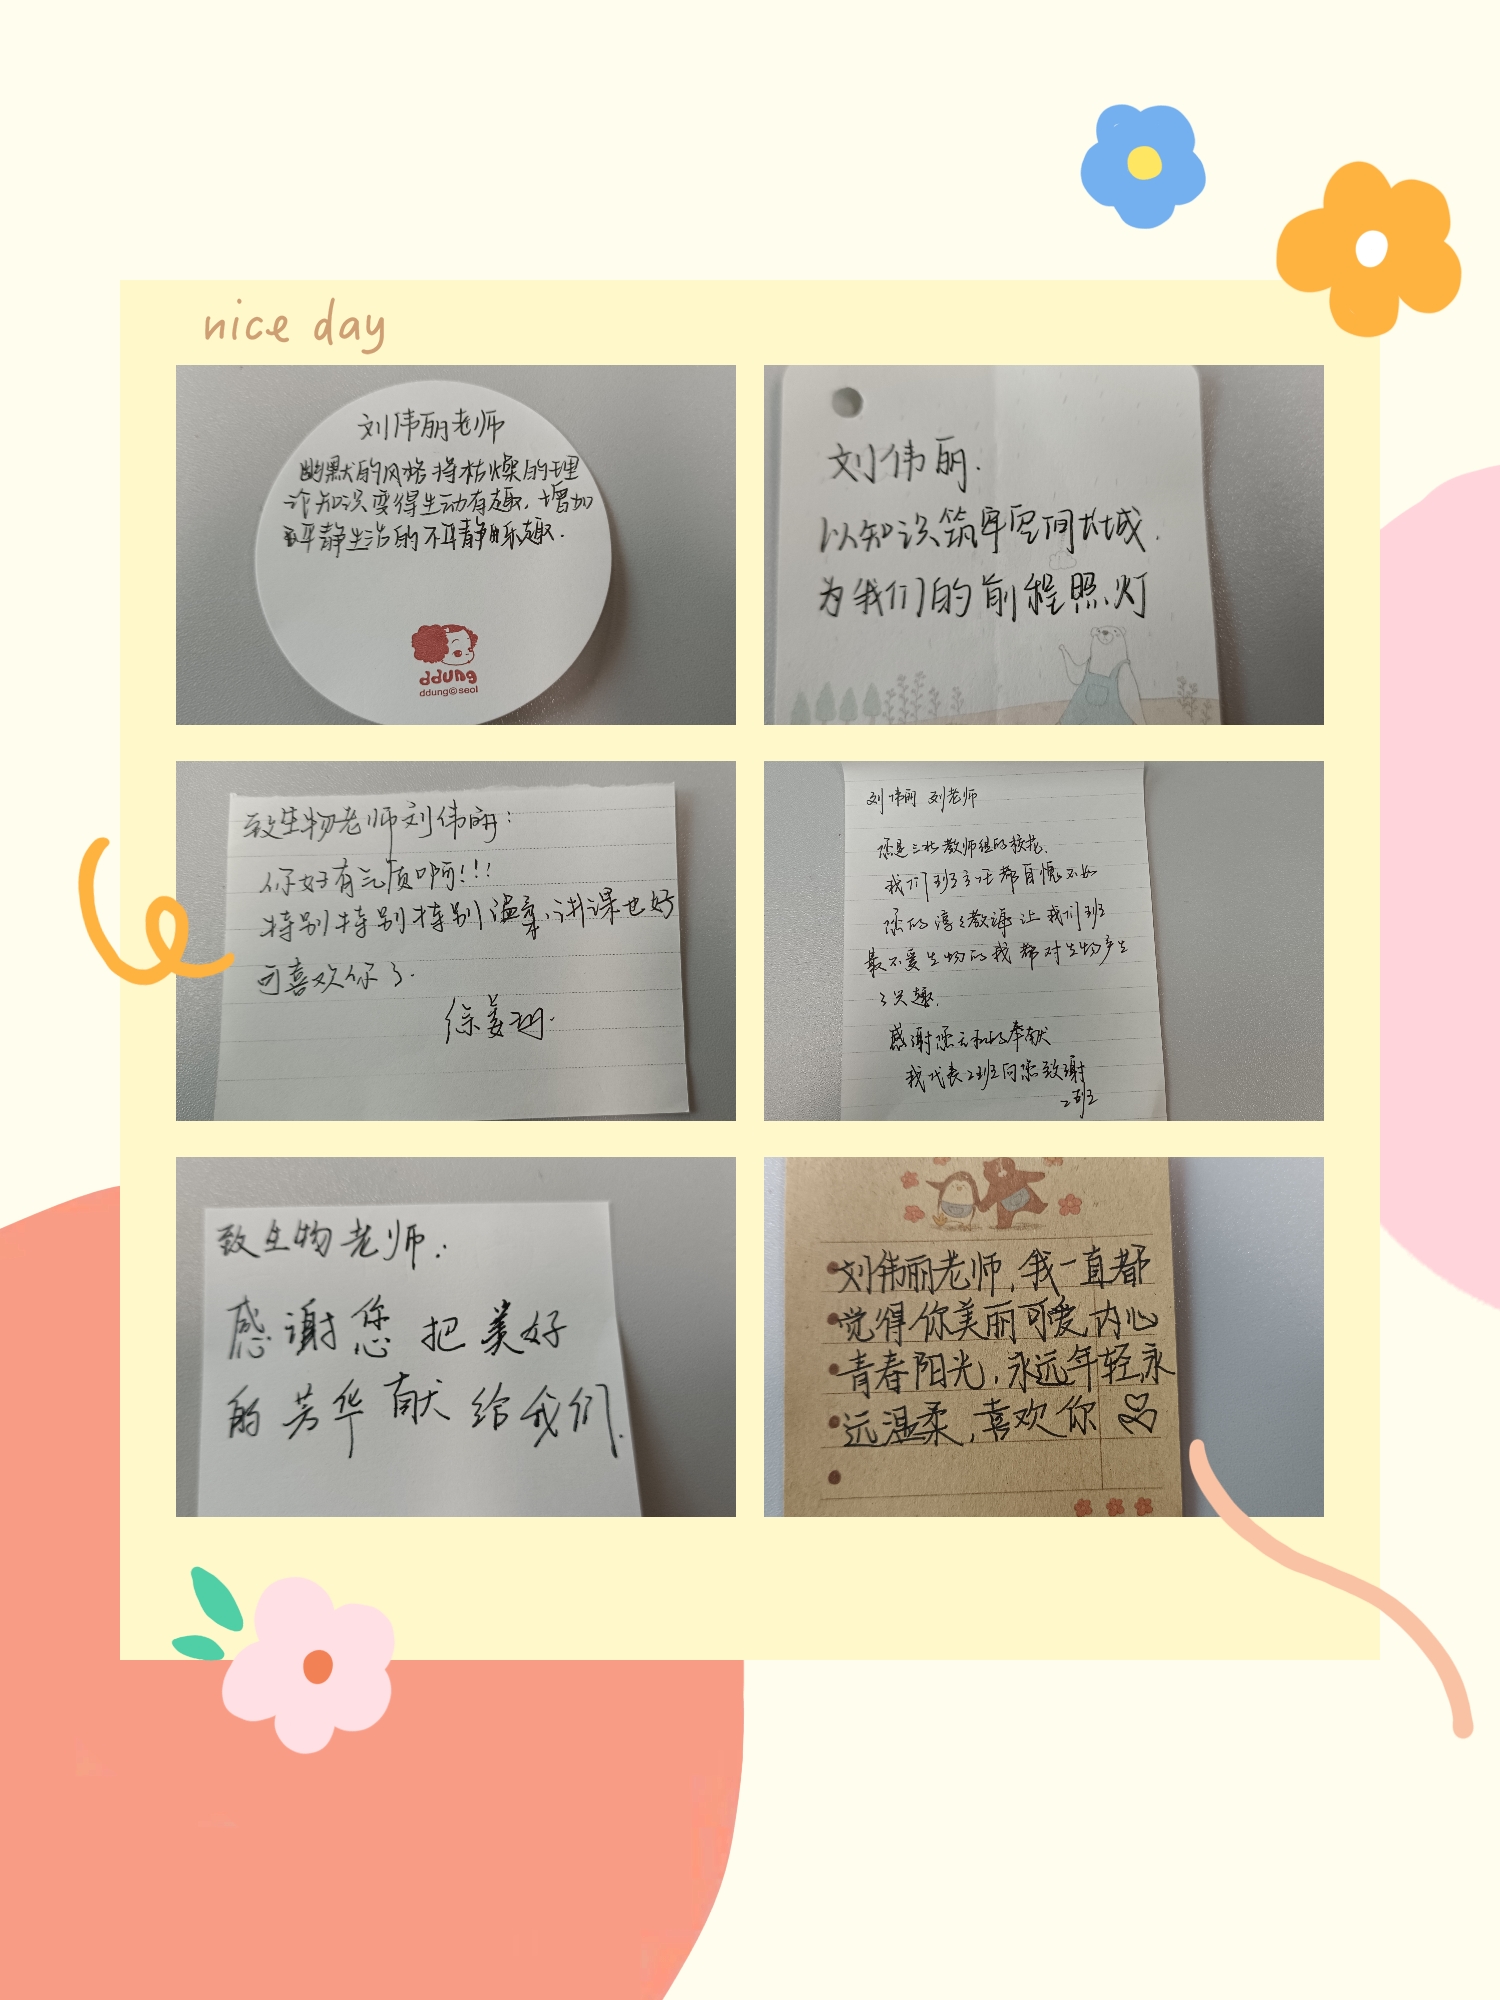 nice day
刘伟丽老师
幽默的风格将枯燥的理
论知识变得生动有趣,增加
平静生活的不平静乐趣.
ddung
ddung©seol
刘伟丽.
以知识筑牢空间长城.
为我们的前程照灯
致生物老师刘伟丽:
你好有气质啊!!!
特别特别特别温柔,讲课也好
可喜欢你了.
徐
刘伟丽 刘老师
您是三北教师组的校花.
我们班主任都自愧不如
您的谆谆教诲让我们班
最不爱生物的我都对生物产生
了兴趣.
感谢您无私的奉献
我代表2班向您致谢
2班
致生物老师:
感谢您把美好
的芳华献给我们.
刘伟丽老师,我一直都
觉得你美丽可爱,内心
青春阳光,永远年轻,永
远温柔,喜欢你